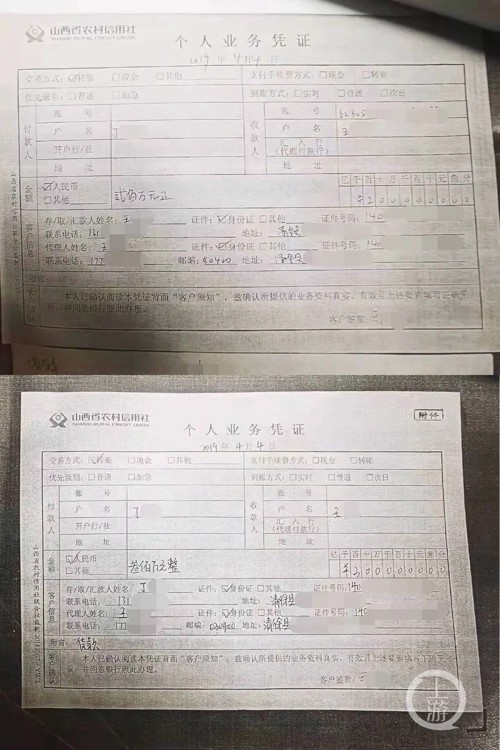 山西省农村信用社
SHANXI RURAL CREDIT UNION
个人业务凭证
2019年4月4日
交易方式: 转账 现金 其他 支付手续费方式: 现金 转账
优先级别: 普通 加急 到账方式: 实时 普通 次日
付款人 账号 收款人 账号 52325
户名 丁 户名 王
开户行/社 汇入行(代理付款行)
地址 地址
金额 人民币 其他 贰佰万元正 亿千百十万千百十元角分
¥200000000
客户信息
存/取/汇款人姓名: 王 证件: 身份证 其他 证件号码: 140
联系电话: 131 地址: 清徐县
代理人姓名: 王 证件: 身份证 其他 证件号码: 140
联系电话: 177 邮编: 地址: 清徐县
本人已确认阅读本凭证背面“客户须知”,兹确认所提供的业务资料真实、有效
并同意按照此办理。
客户签章: 王
山西省农村信用社
SHANXI RURAL CREDIT UNION
附件
个人业务凭证
2019年4月4日
交易方式: 转账 现金 其他 支付手续费方式: 现金 转账
优先级别: 普通 加急 到账方式: 实时 普通 次日
付款人 账号 收款人 账号
户名 丁 户名 王
开户行/社 汇入行(代理付款行)
地址 地址
金额 人民币 其他 叁佰万元整 亿千百十万千百十元角分
¥300000000
客户信息
存/取/汇款人姓名: 丁 证件: 身份证 其他 证件号码: 140
联系电话: 131 地址: 清徐县
代理人姓名: 王 证件: 身份证 其他 证件号码: 140
联系电话: 177 邮编: 030400 地址: 清徐县
附言: 货款
本人已确认阅读本凭证背面“客户须知”,兹确认所提供的业务资料真实、有效
并同意按照此办理。
客户签章: 王
山西省农村信用社联合社监制
上游